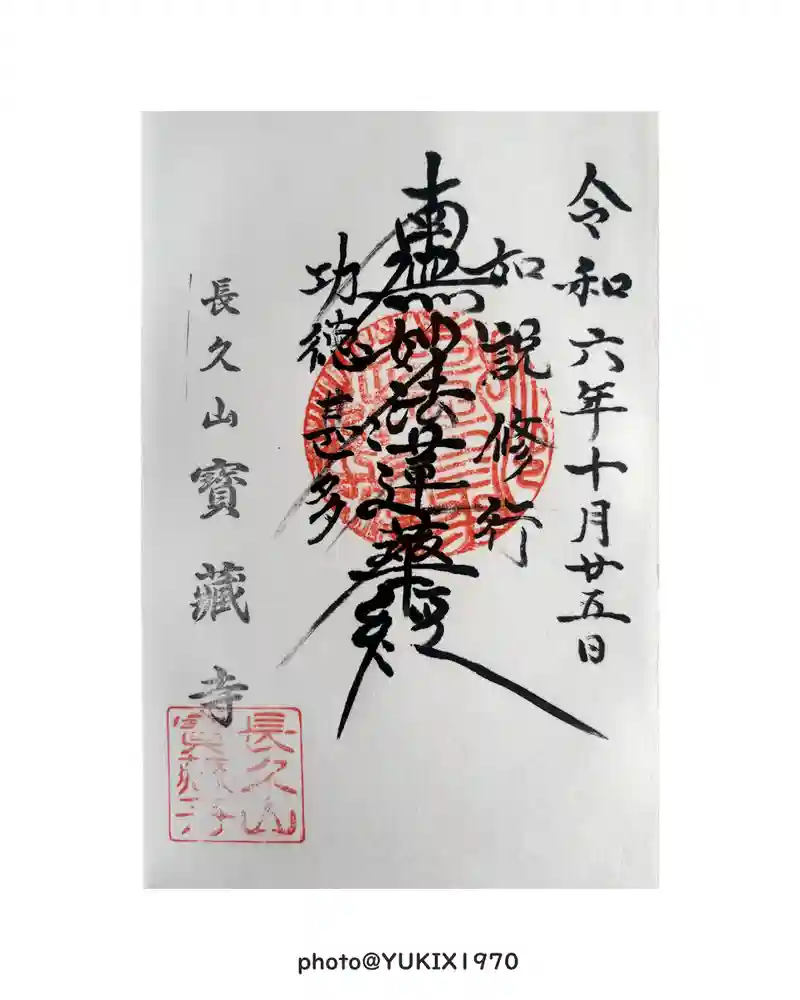 令和六年十月廿五日
如説修行
南無妙法蓮華経
功徳甚多
長久山寶藏寺
長久山
寶藏寺
photo@YUKIX1970